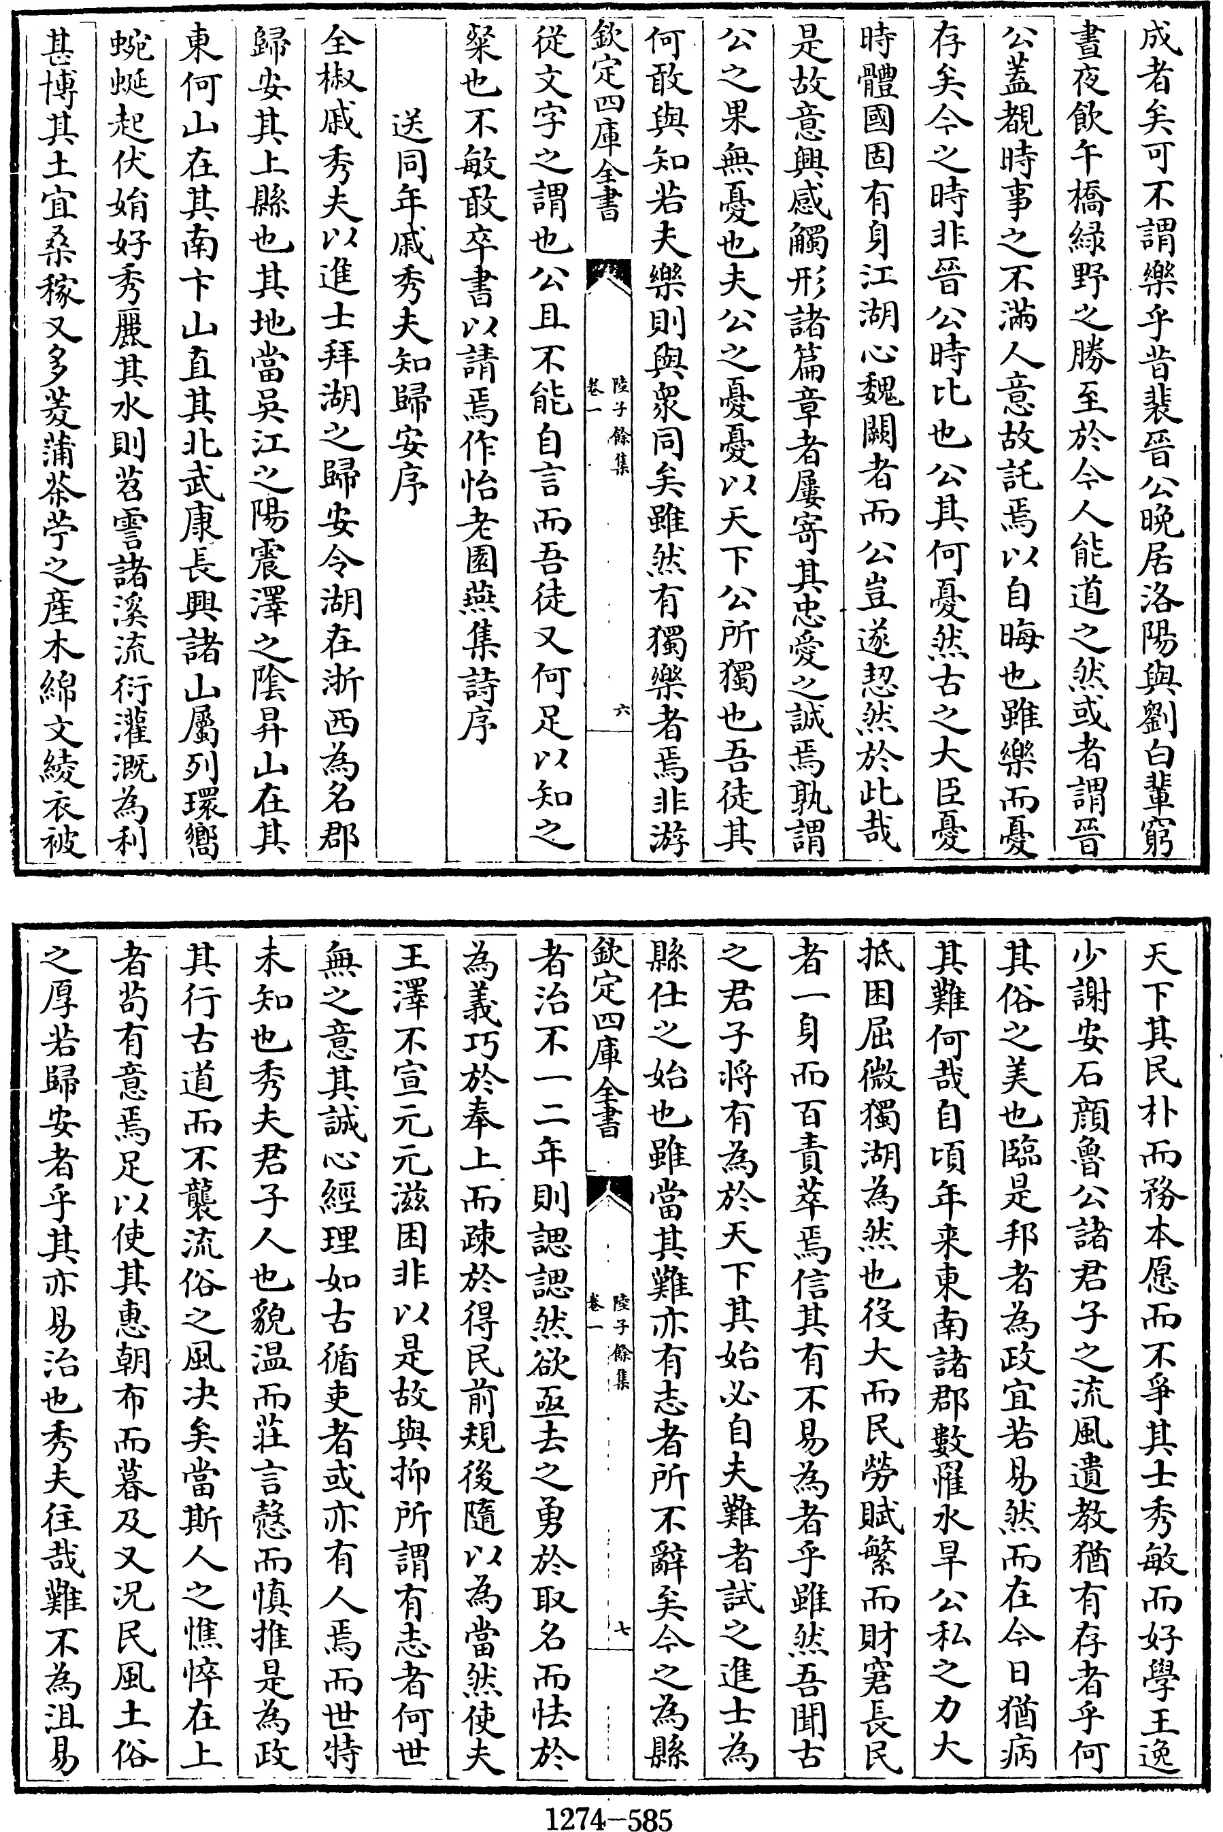 成者矣可不謂樂乎昔裴晉公晚居洛陽與劉白輩窮
晝夜飲午橋緑野之勝至於今人能道之然或者謂晉
公蓋覩時事之不滿人意故託焉以自晦也雖樂而憂
存矣今之時非晉公時比也公其何憂然古之大臣憂
時體國固有身江湖心魏闕者而公豈遂恝然於此哉
是故意興感觸形諸篇章者屢寄其忠愛之誠焉孰謂
公之果無憂也夫公之憂憂以天下公所獨也吾徒其
何敢與知若夫樂則與衆同矣雖然有獨樂者焉非游
欽定四庫全書
陸子餘集
卷一
六
從文字之謂也公且不能自言而吾徒又何足以知之
粲也不敏敢卒書以請焉作怡老園燕集詩序
送同年戚秀夫知歸安序
全椒戚秀夫以進士拜湖之歸安令湖在浙西為名郡
歸安其上縣也其地當吳江之陽震澤之陰昇山在其
東何山在其南卞山直其北武康長興諸山屬列環嚮
蜿蜒起伏娟好秀麗其水則苕霅諸溪流衍灌溉為利
甚博其土宜桑稼又多菱蒲茶苧之産木綿文綾衣被
天下其民朴而務本愿而不爭其士秀敏而好學王逸
少謝安石顔魯公諸君子之流風遺教猶有存者乎何
其俗之美也臨是邦者為政宜若易然而在今日猶病
其難何哉自頃年来東南諸郡數罹水旱公私之力大
抵困屈微獨湖為然也役大而民勞賦繁而財窘長民
者一身而百責萃焉信其有不易為者乎雖然吾聞古
之君子將有為於天下其始必自夫難者試之進士為
縣仕之始也雖當其難亦有志者所不辭矣今之為縣
欽定四庫全書
陸子餘集
卷一
七
者治不一二年則諰諰然欲亟去之勇於取名而怯於
為義巧於奉上而疎於得民前規後隨以為當然使夫
王澤不宣元元滋困非以是故與抑所謂有志者何世
無之意其誠心經理如古循吏者或亦有人焉而世特
未知也秀夫君子人也貌温而莊言慤而慎推是為政
其行古道而不襲流俗之風决矣當斯人之憔悴在上
者苟有意焉足以使其惠朝布而暮及又况民風土俗
之厚若歸安者乎其亦易治也秀夫往哉難不為沮易
1274-585